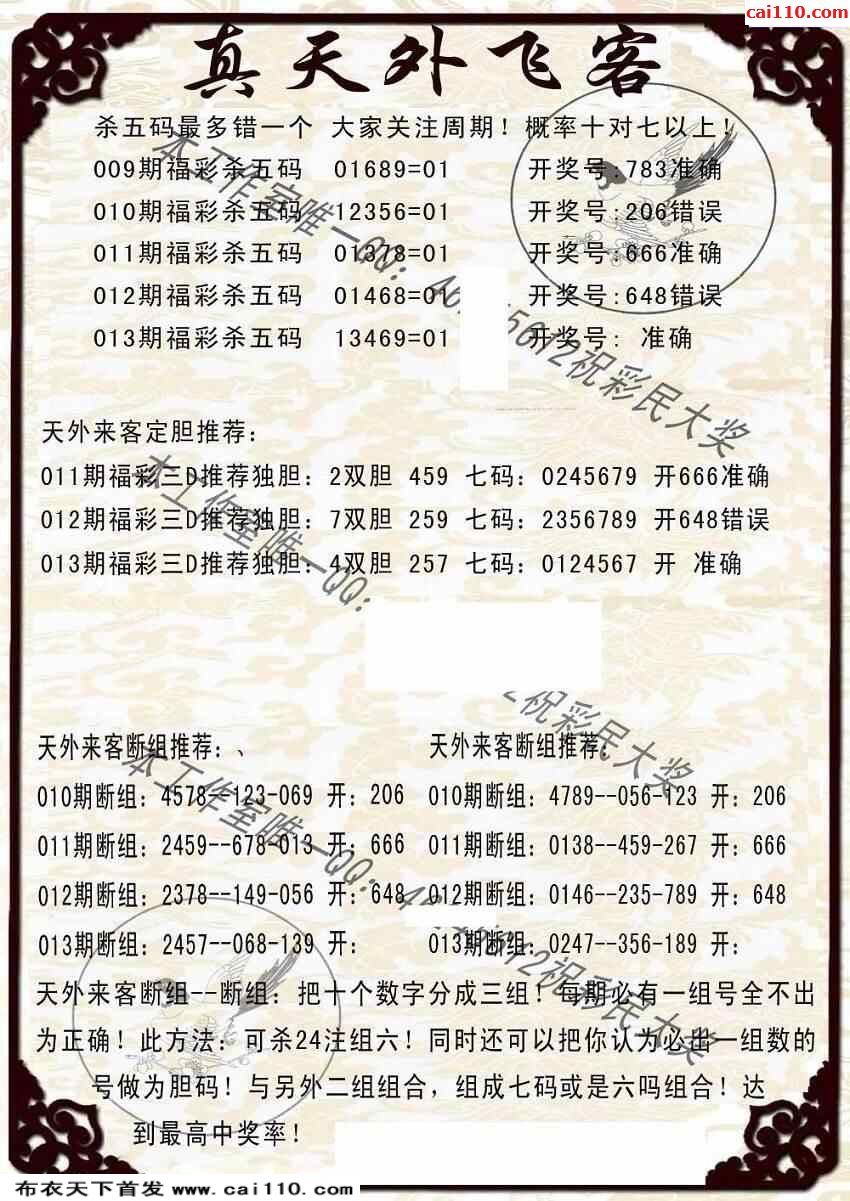 cai110.com
真天外飞客
杀五码最多错一个 大家关注周期！概率十对七以上！
009期福彩杀五码 01689=01 开奖号:783准确
010期福彩杀五码 12356=01 开奖号:206错误
011期福彩杀五码 01378=01 开奖号:666准确
012期福彩杀五码 01468=01 开奖号:648错误
013期福彩杀五码 13469=01 开奖号: 准确
天外来客定胆推荐：
011期福彩三D推荐独胆：2双胆 459 七码：0245679 开666准确
012期福彩三D推荐独胆：7双胆 259 七码：2356789 开648错误
013期福彩三D推荐独胆：4双胆 257 七码：0124567 开 准确
天外来客断组推荐：、 天外来客断组推荐：
010期断组：4578--123-069 开：206 010期断组：4789--056-123 开：206
011期断组：2459--678-013 开：666 011期断组：0138--459-267 开：666
012期断组：2378--149-056 开：648 012期断组：0146--235-789 开：648
013期断组：2457--068-139 开： 013期断组：0247--356-189 开：
天外来客断组--断组：把十个数字分成三组！每期必有一组号全不出
为正确！此方法：可杀24注组六！同时还可以把你认为必出一组数的
号做为胆码！与另外二组组合，组成七码或是六吗组合！达
到最高中奖率！
本工作室唯一QQ：
祝彩民大奖
本工作室唯一QQ：
祝彩民大奖
本工作室唯一QQ：
祝彩民大奖
布衣天下首发 www.cai110.com